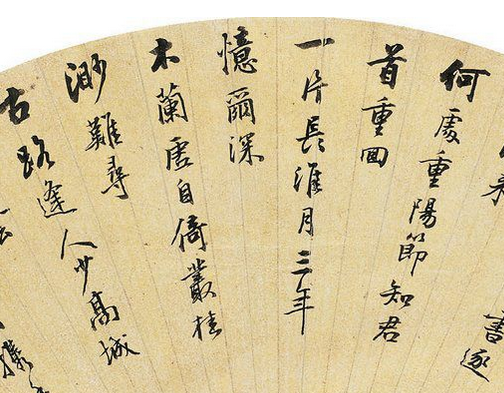 書逐
何處重陽節知君
首重回
一片長淮月三年
憶爾深
木蘭虛自倚叢桂
渺難尋
古路逢人少高城